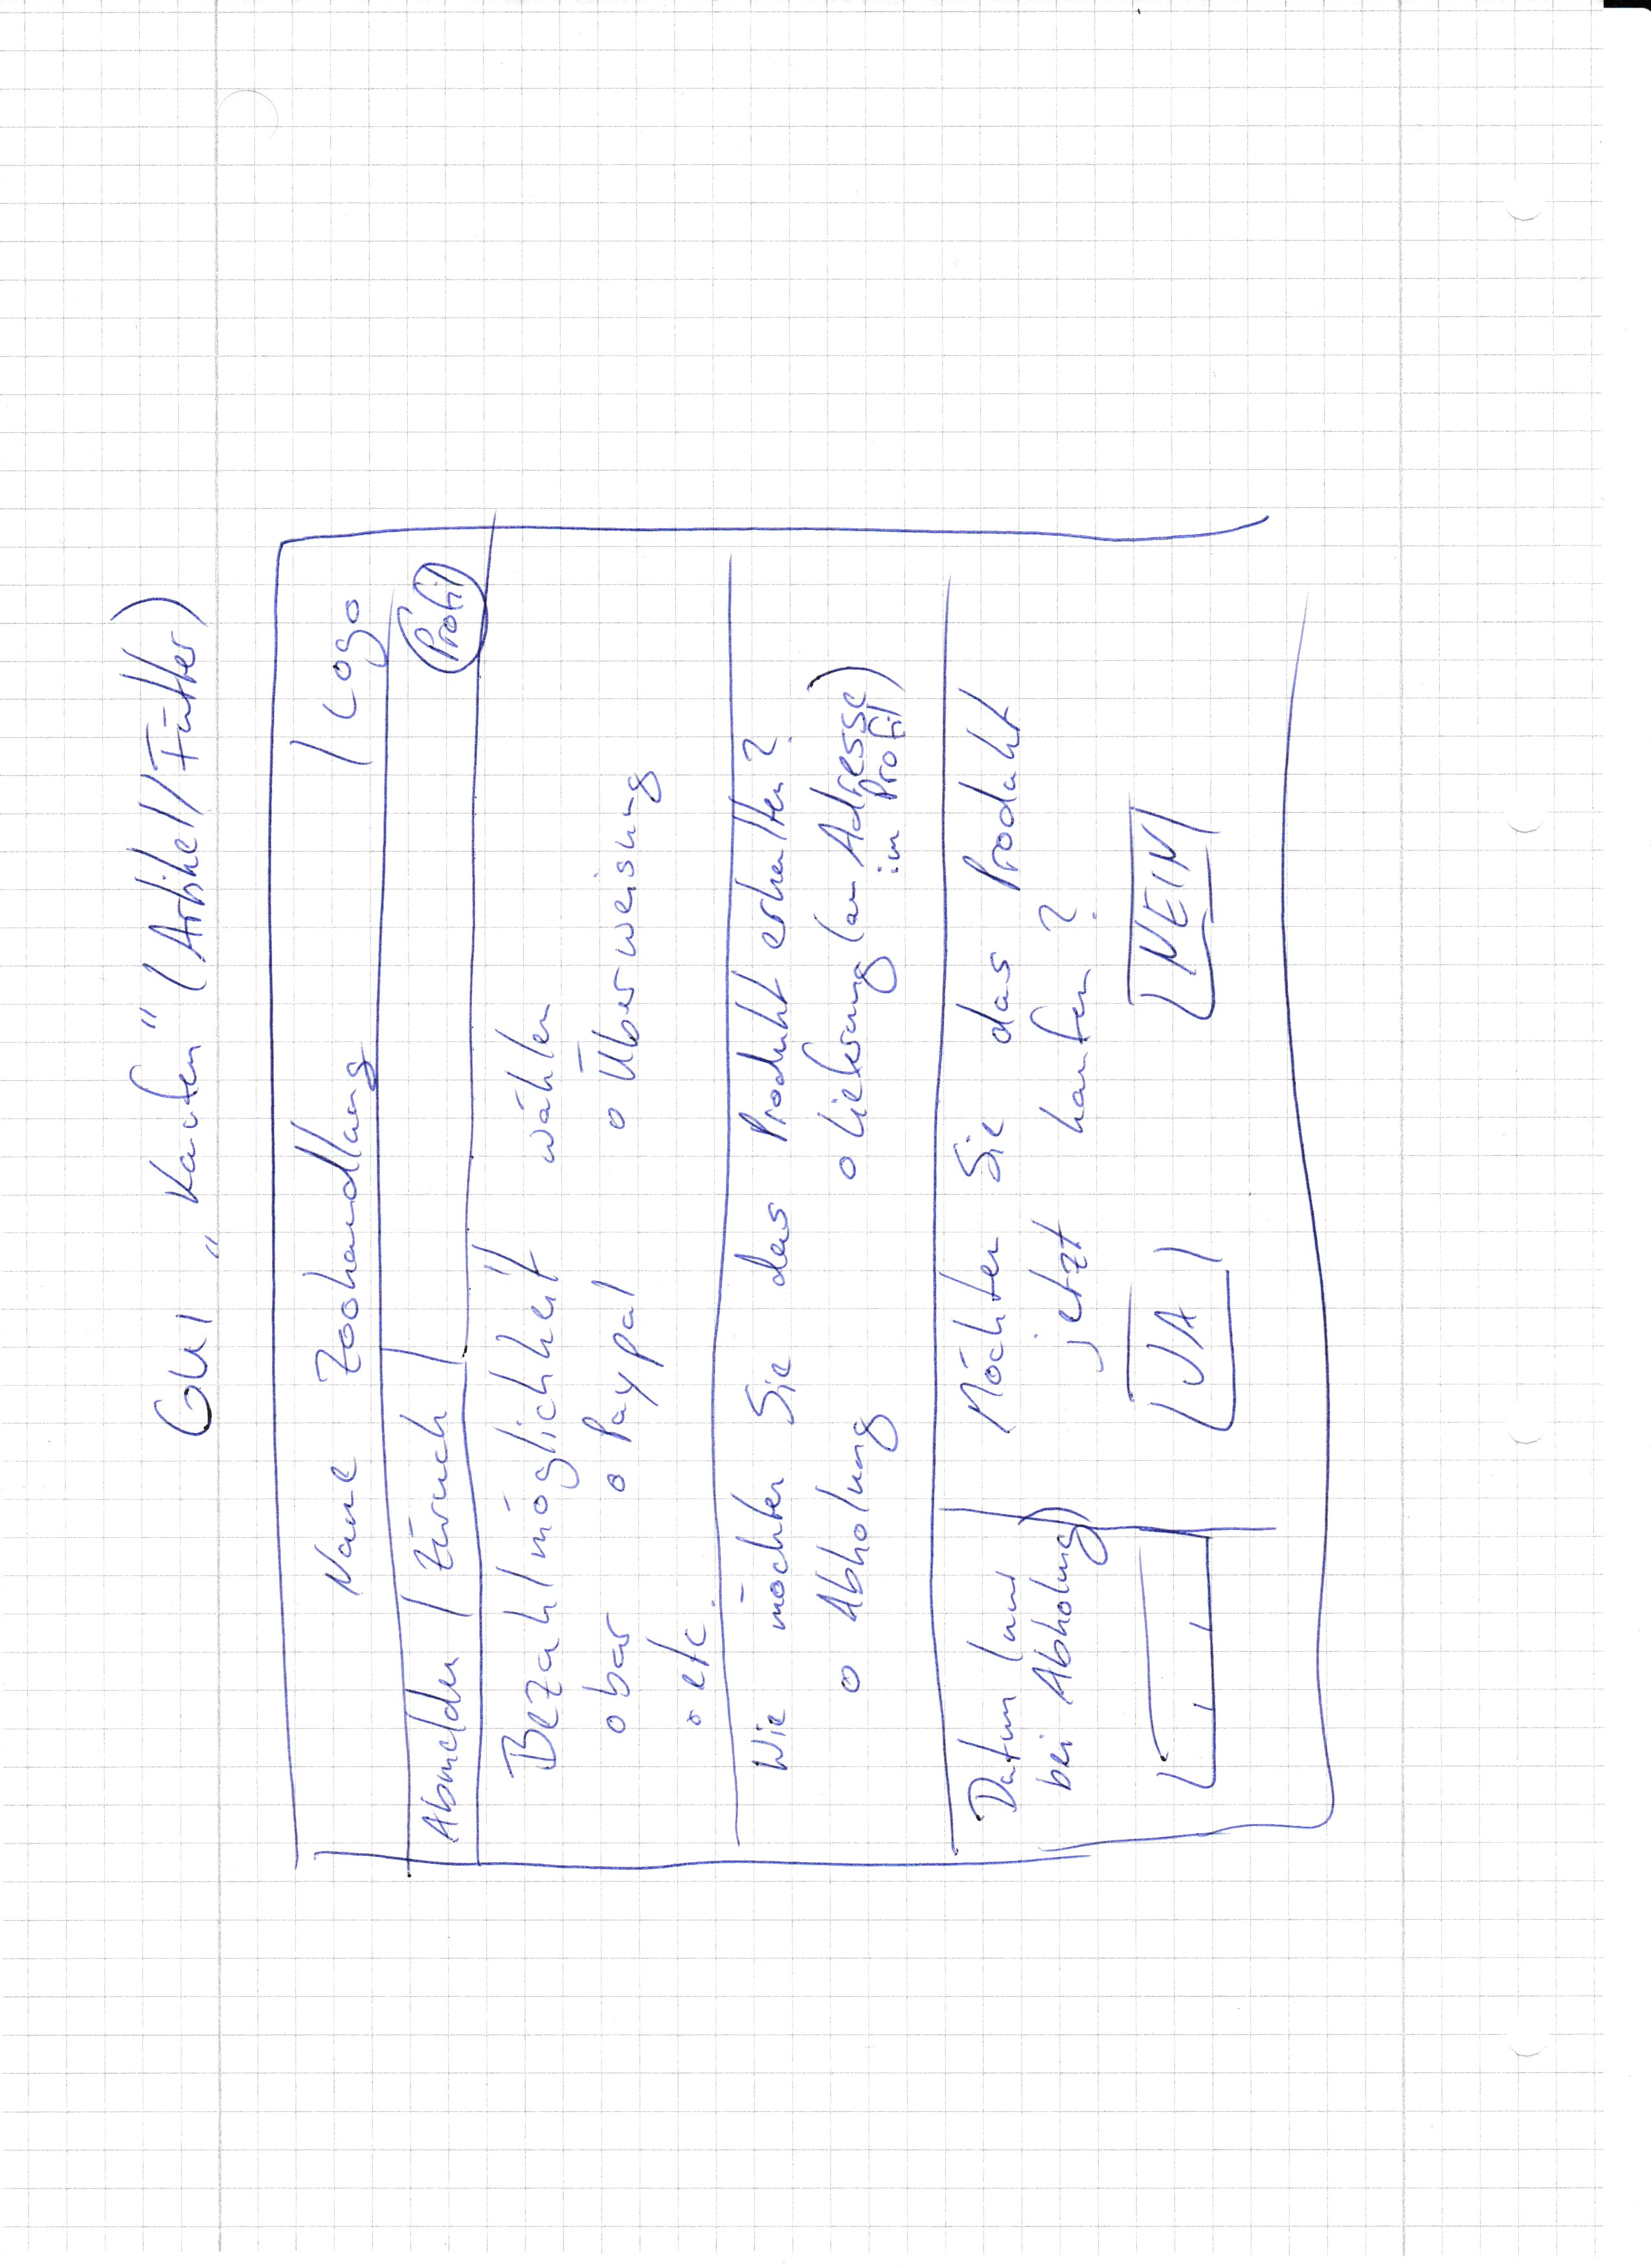 GUI „Kaufen" (Artikel/Futter)
Name Zoohandlung | Logo
Abmelden | Zurück | Profil
Bezahlmöglichkeit wählen
o bar o Paypal o Überweisung
o etc.
Wie möchten Sie das Produkt erhalten?
o Abholung o Lieferung (an Adresse
im Profil)
Datum (nur
bei Abholung)
Möchten Sie das Produkt
jetzt kaufen?
JA NEIN